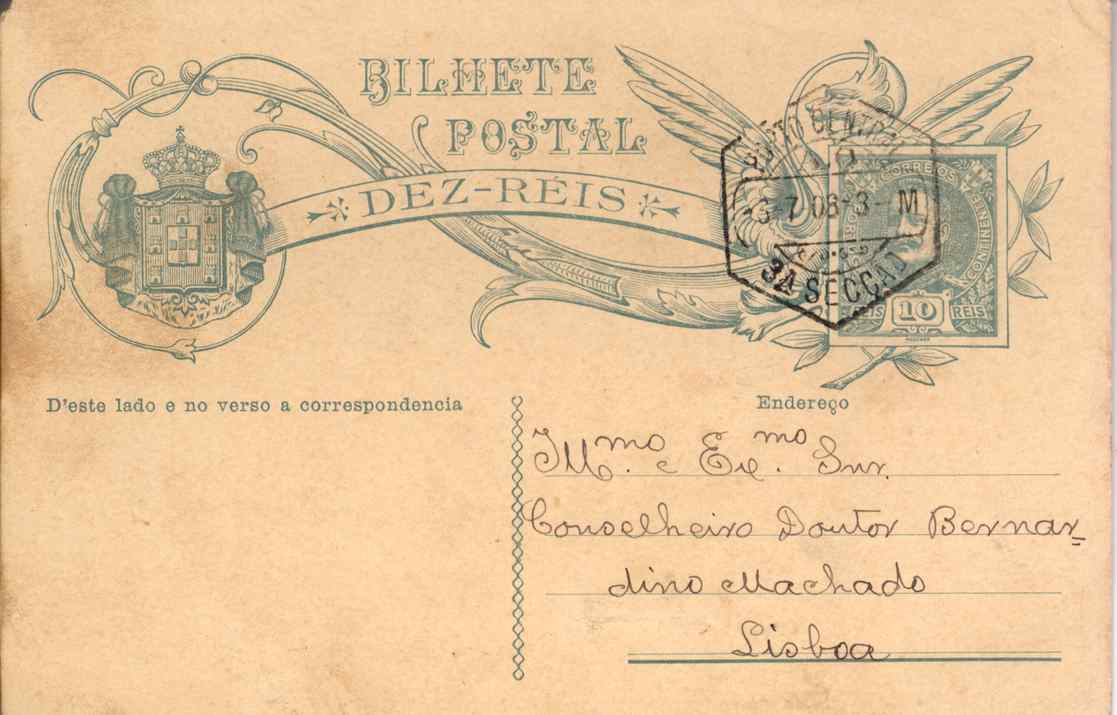 BILHETE
POSTAL
DEZ-RÉIS
PORTO CENTRAL
3-M
3A SECÇAO
CORREIOS
CONTINENTE
REIS 10 REIS
D'este lado e no verso a correspondencia
Endereço
Illmo. e Exmo. Snr.
Conselheiro Doutor Bernar-
dino Machado
Lisboa